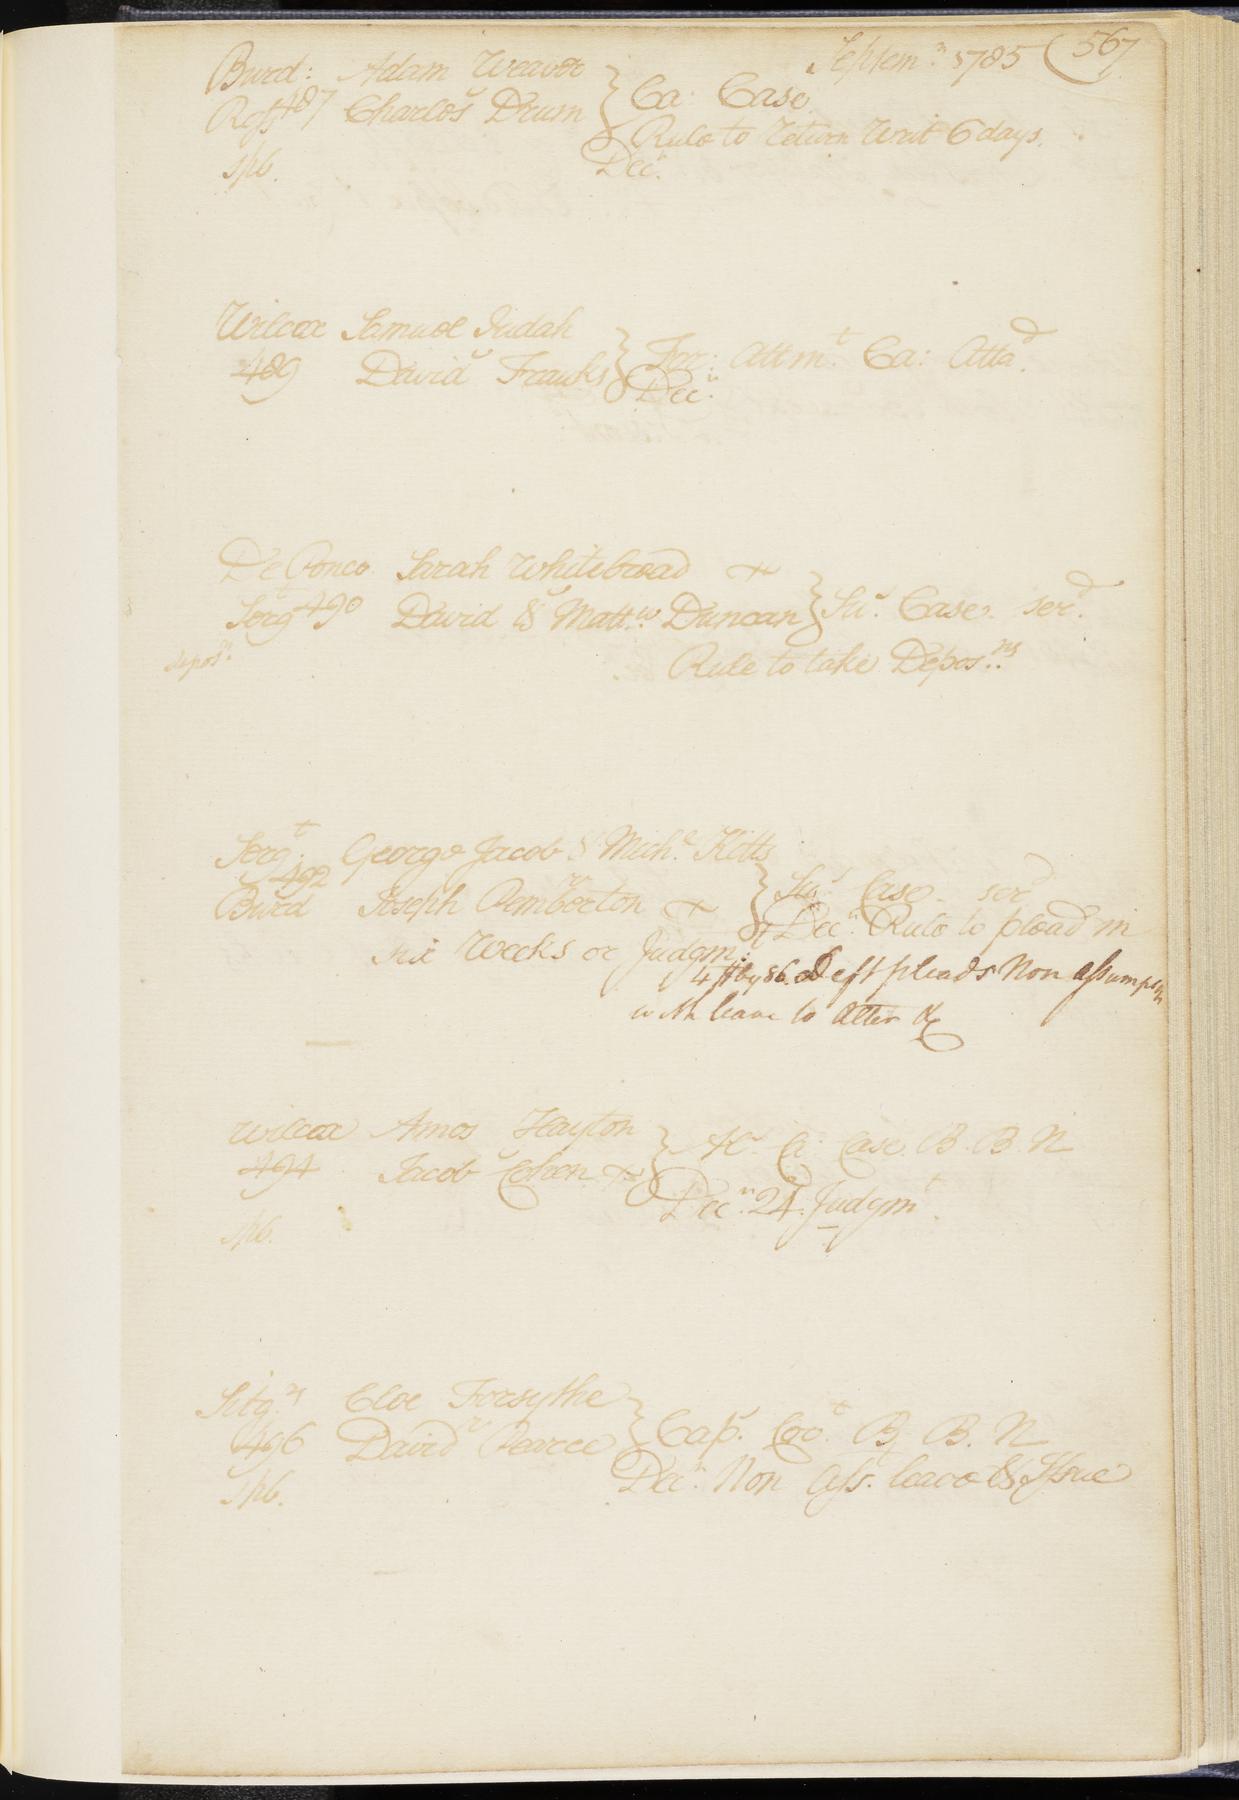 Septemr 1785 (567
Burd: Adam Weaver
Ross 487 vs Charles Drum } Ca: Case
Rule to Return Writ 6 days.
spb. Decn.
Wilcox Samuel Judah
489 David vs Franks } For: Attmt. Ca: Attad.
Decn.
De Ponco Sarah Whitebread +
Sergt 490 David vs & Mattw. Duncan } Sus. Case. serd.
deposns. Rule to take Deposns.
Sergt. George Jacob & Michl. Kitts
492
Burd Joseph vs Pemberton + } Sus. Case - serd
Decn. Rule to plead in
six Weeks or Judgm.
4 ffby 86. Deft pleads Non Assumpsn
with leave to Alter &c
Wilcox Amos Hayton
494 Jacob vs Cohen + } Ca: Case. B. B. N
Decn. 24. Judgmt.
spb.
Sitgrs Cloe Forsythe
496 David vs Pearce } Caps. Covt. B. B. N
spb. Decn. Non Ass. leave & Issue